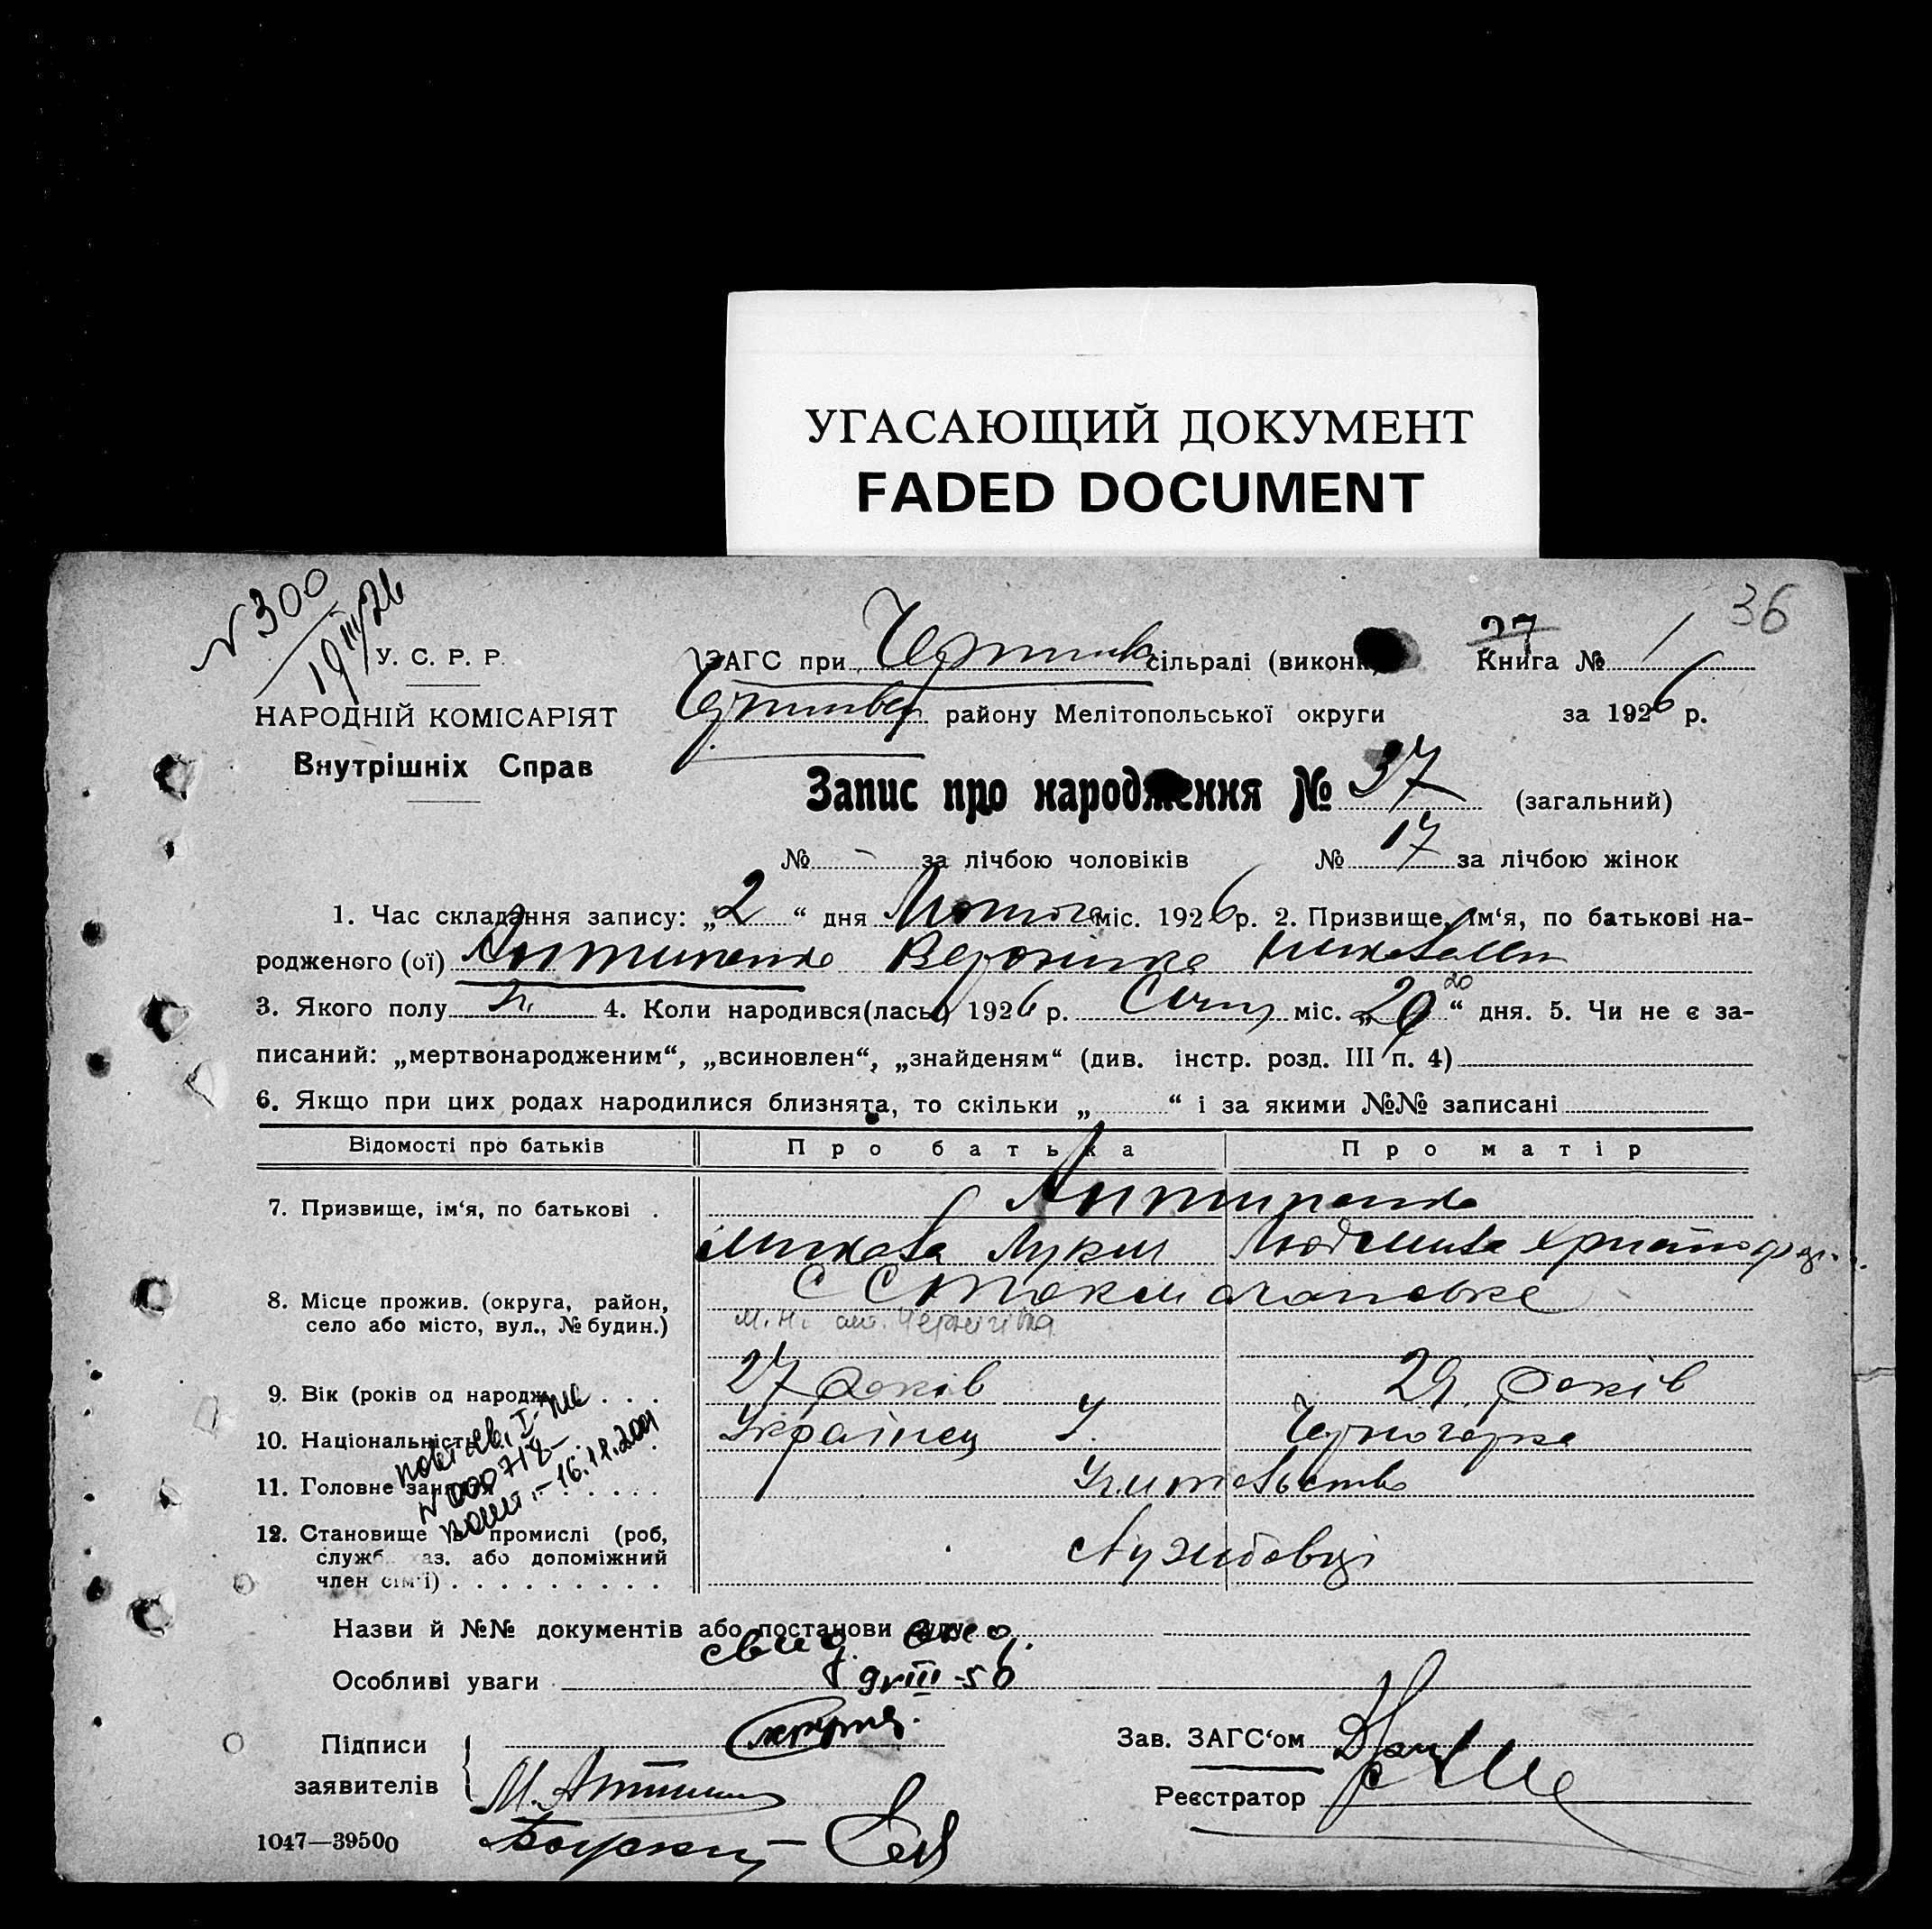 УГАСАЮЩИЙ ДОКУМЕНТ
FADED DOCUMENT
N 300
19 III/26
36
У. С. Р. Р.
НАРОДНІЙ КОМІСАРІЯТ
Внутрішніх Справ
ЗАГС при сільраді (виконк
27
Книга № 1
району Мелітопольської округи за 1926 р.
Запис про народження № 37 (загальний)
№ - за лічбою чоловіків № 17 за лічбою жінок
1. Час складання запису: „2“ дня Лютого міс. 1926 р. 2. Призвище, ім‘я, по батькові на-
родженого (ої) Антипенко Вероніка
3. Якого полу 4. Коли народився(лась) 1926 р. Січня міс. „20“ 20 дня. 5. Чи не є за-
писаний: „мертвонародженим“, „всиновлен“, „знайденям“ (див. інстр. розд. III п. 4)
6. Якщо при цих родах народилися близнята, то скільки „ “ і за якими №№ записані
Відомості про батьків Про батька Про матір
7. Призвище, ім‘я, по батькові . Антипенко
Микола Лукич Людмила
8. Місце прожив. (округа, район,
село або місто, вул., № будин.)
С
м. н. смт. Чернігівка
9. Вік (років од народж. . . . 27 років 29 років
10. Національність Українец У. Черногорка
11. Головне заняття Учительство
12. Становище в промислі (роб,
служб. аз. або допоміжний
член сім‘ї)
Службовці
N 000718
16.11.2001
Назви й №№ документів або постанови суду
свид.
Особливі уваги 9 VIII-50
Підписи
заявителів
М. Антипенко
Зав. ЗАГС‘ом
Реєстратор
1047—39500